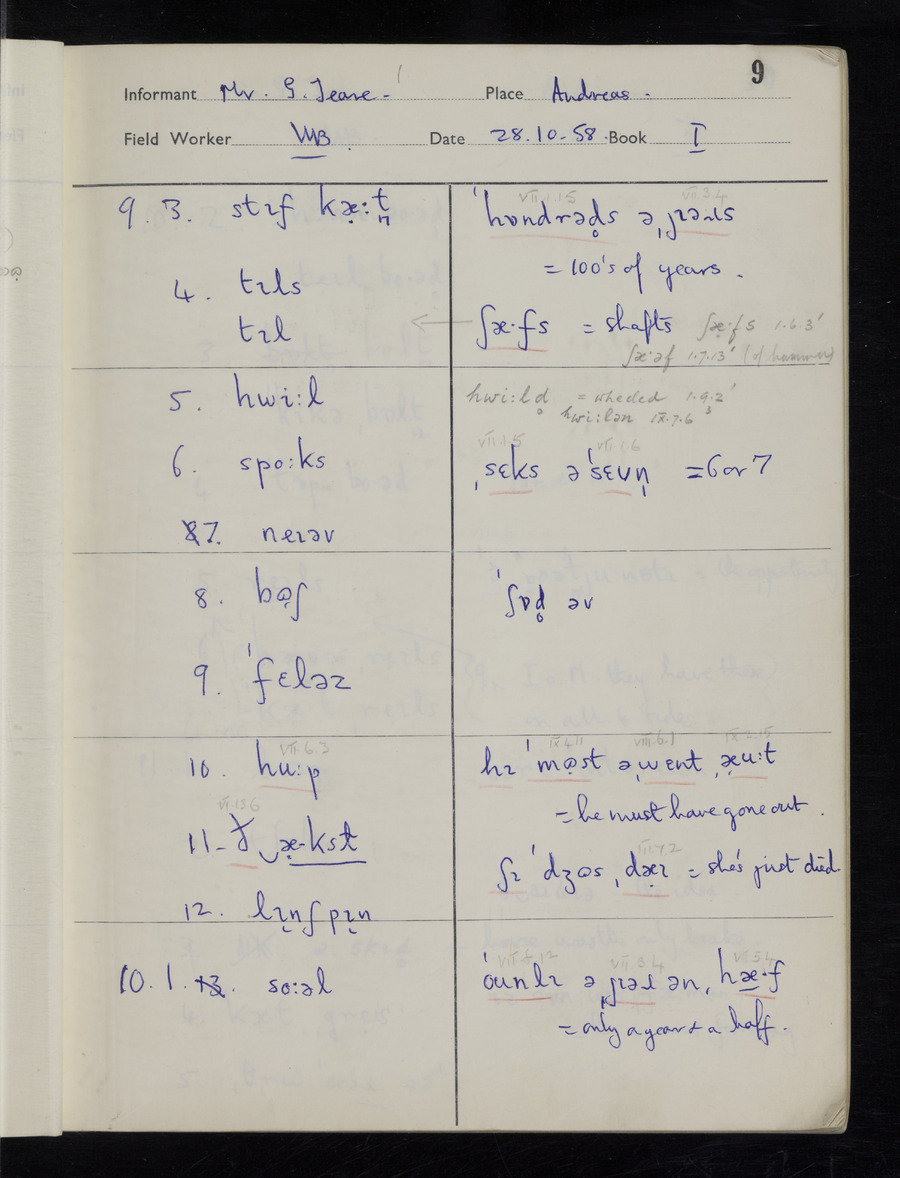 9
Informant Mr. G. Teare - Place Andreas -
Field Worker VMB. Date 28.10-58. Book I
9. 3. stɪf kæ̣·t̪n̩
4. tɪls
tɪl
5. hwi:l
6. spo:ks
7. neɪəv
8. bə̣ʃ
9. ˈfɛləz
VII.6.3
10. hu:p
11- æ̣·kst
12. lɪ̣nʃpɪ̣n
10. 1. so:əl
VII.1.15 VII.3.4
ˈhʊndrəd̥s ə ˌjɪəɹs
= 100's of years.
ʃæ·fs = shafts ʃæ·fs 1.6.3'
ʃæ·əf 1.7.13' (of hammer)
hwi:ld̥ = wheeled 1.9.2'
hwi:lən IX.7.6
VII.1.5 VII.1.6
ˌsɛks əˈsɛvn̩ = 6 or 7
ˈʃɒd̥ əv
VIII.6.1 IX.2.15
hɪ ˈmə̣st əˌwɛnt ˌæ̣u:t
= he must have gone out.
ʃɪ ˈdʒəs ˌdæ̣ɪ = she's just died.
VII.3.4 VII.5.4
ˈounlɪ ə ˌjɪəɹ ən ˌhæ·f
= only a year & a half.